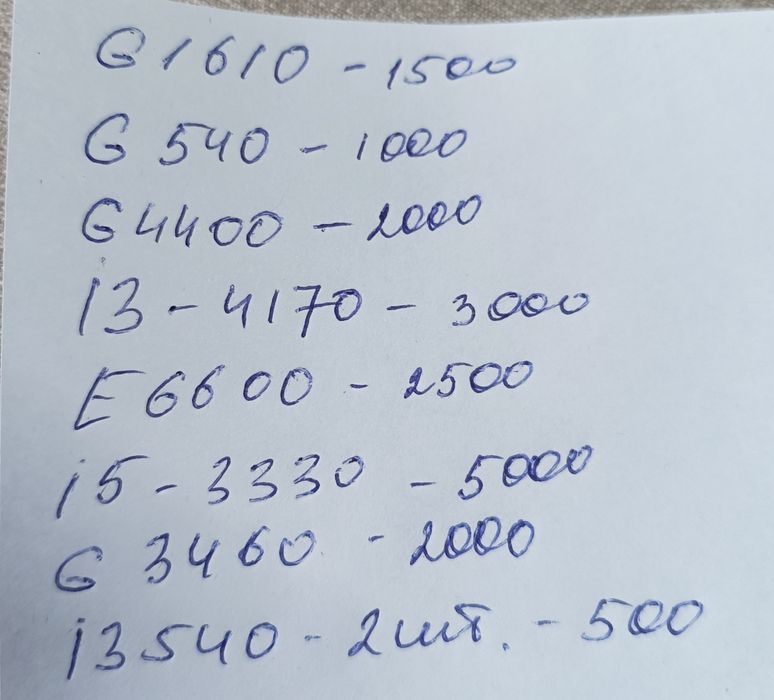 G1610 - 1500
G 540 - 1000
G4400 - 2000
I3 - 4170 - 3000
E6600 - 2500
i5 - 3330 - 5000
G 3460 - 2000
i3 540 - 2 шт. - 500